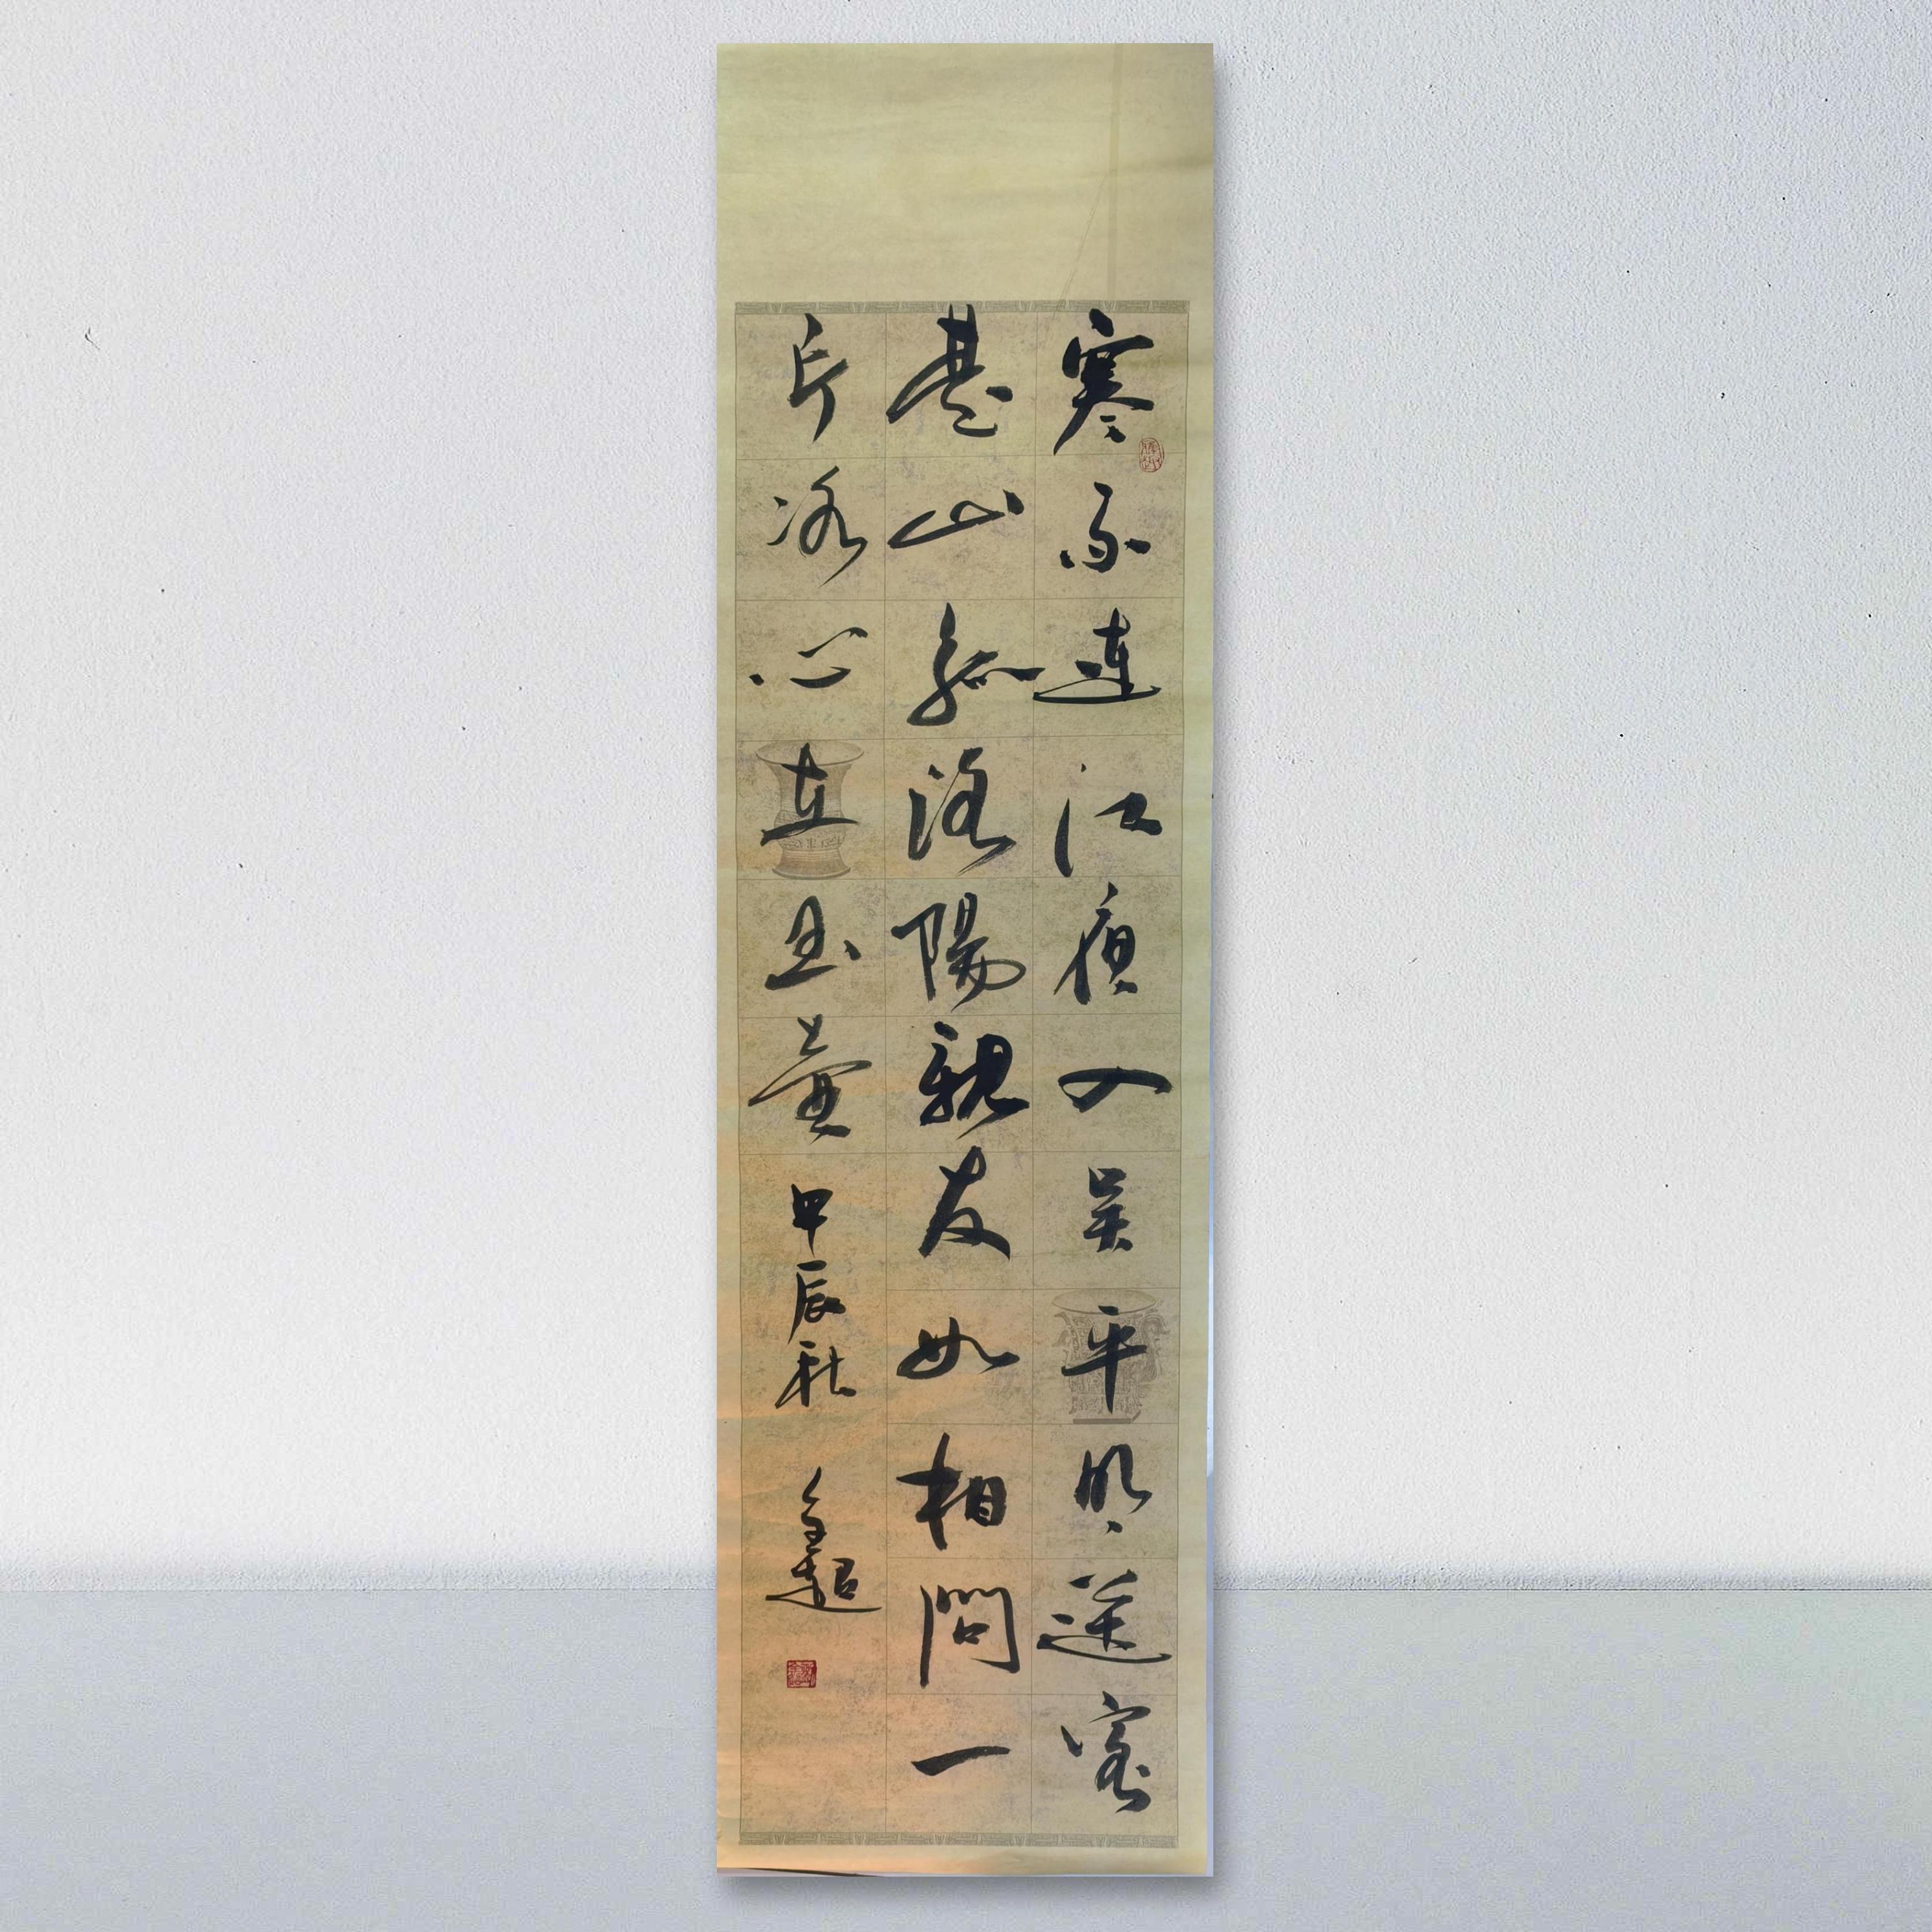 寒雨連江夜入吳平明送客
楚山孤洛陽親友如相問一
片冰心在玉壺甲辰秋